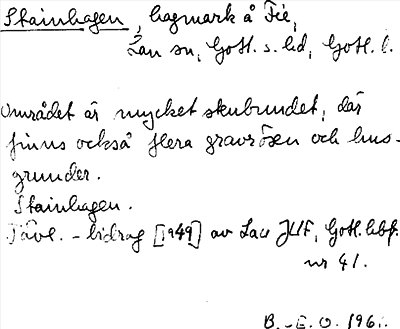 Stainhagen, hagmark å Fie,
Lau sn, Gotl. s. hd, Gotl. l.
Området är mycket stenbundet, där
finns också flera gravrösen och hus-
grunder.
Stainhagen.
Tävl. - bidrag [1949] av Lau JUF, Gotl. hbf.
nr 41.
B. - E. O. 196